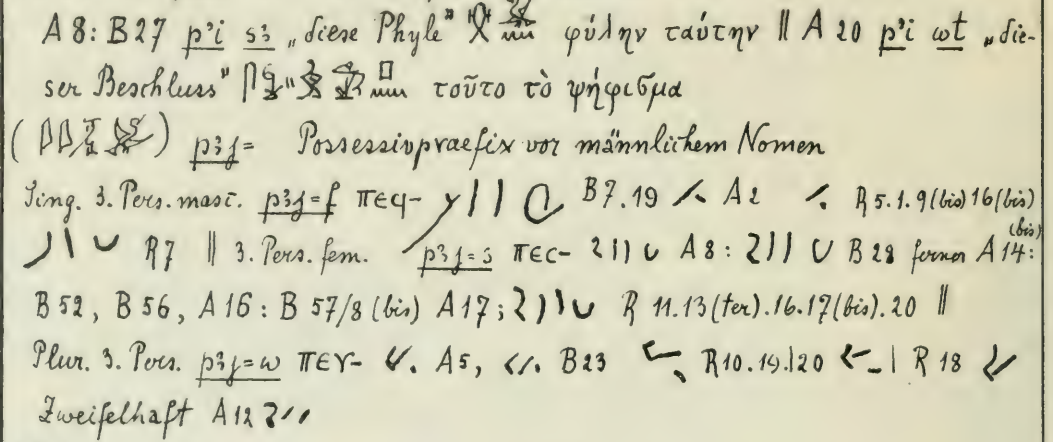 A 8: B 27 pꜣi sꜣ „diese Phyle" φύλην ταύτην || A 20 pꜣi wt „die-
ser Beschluss" τοῦτο τὸ ψήφισμα
( ) pꜣj= Possessivpraefix vor männlichem Nomen
Sing. 3. Pers. masc. pꜣj=f ⲡⲉϥ- B 7. 19 A 2 R 5. 1. 9 (bis) 16 (bis)
R 7 || 3. Pers. fem. pꜣj=s ⲡⲉⲥ- A 8: B 28 ferner A 14: (bis)
B 52, B 56, A 16: B 57/8 (bis) A 17; R 11. 13 (ter). 16. 17 (bis). 20 ||
Plur. 3. Pers. pꜣj=w ⲡⲉⲩ- A 5, B 23 R 10. 19. 20 R 18
Zweifelhaft A 12